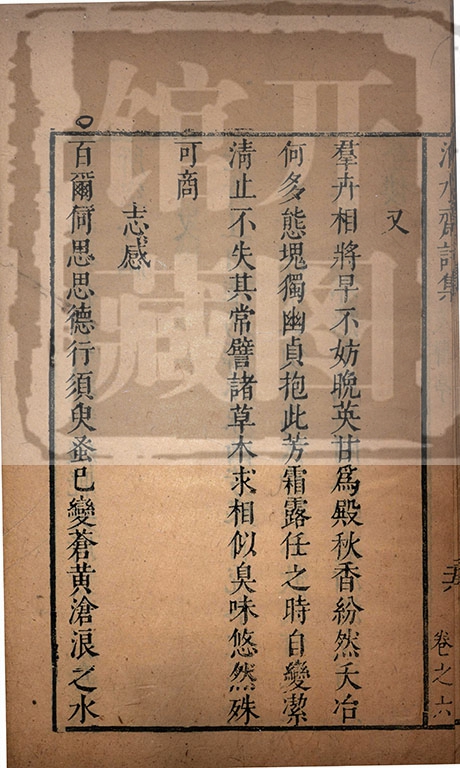 水齋詩集
卷之六
又
羣卉相將早不妨晚英甘爲殿秋香紛然夭冶
何多態塊獨幽貞抱此芳霜露任之時自變潔
清止不失其常譬諸草木求相似臭味悠然殊
可商
志感
百爾何思思德行須臾蚤巳變蒼黃滄浪之水
开图
馆藏